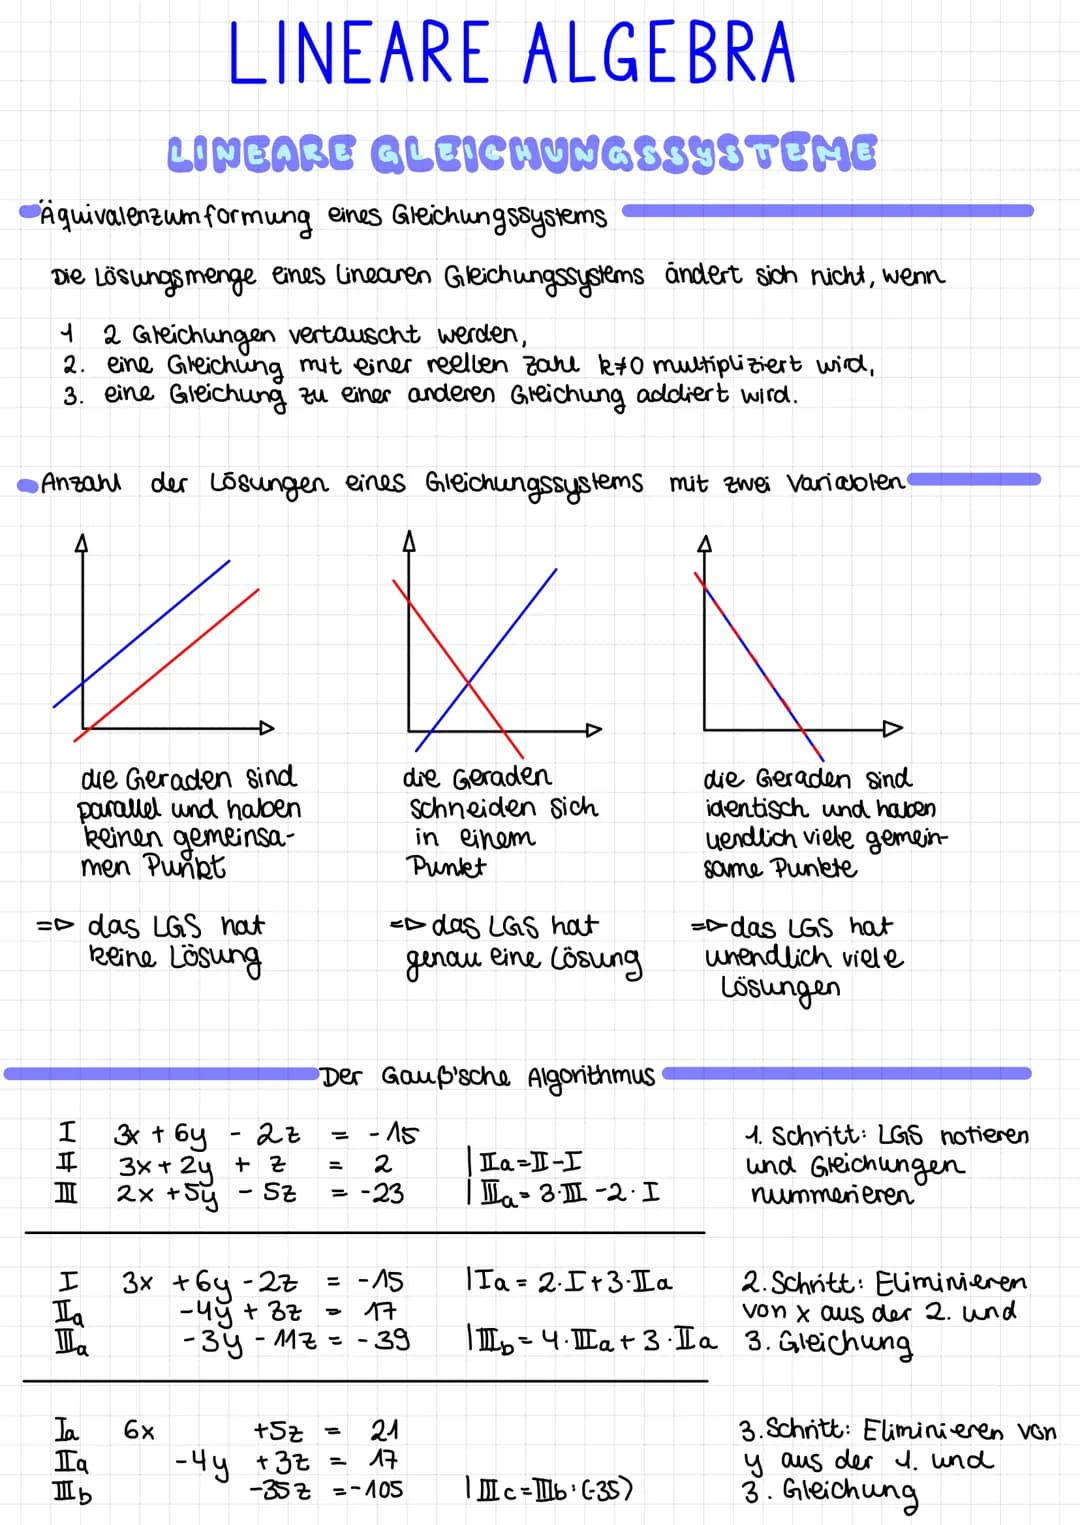 LINEARE ALGEBRA
LINEARE GLEICHUNGSSYSTEME
Äquivalenzumformung eines Gleichungssystems
Die Lösungsmenge eines linearen Gleichungssystems ändert sich nicht, wenn
1 2 Gleichungen vertauscht werden,
2. eine Gleichung mit einer reellen Zahl k≠0 multipliziert wird,
3. eine Gleichung zu einer anderen Gleichung addiert wird.
Anzahl der Lösungen eines Gleichungssystems mit zwei Variablen
die Geraden sind
parallel und haben
keinen gemeinsa-
men Punkt
=> das LGS hat
keine Lösung
die Geraden
schneiden sich
in einem
Punkt
=> das LGS hat
genau eine Lösung
die Geraden sind
identisch und haben
uendlich viele gemein-
same Punkte
=> das LGS hat
unendlich viele
Lösungen
Der Gauß'sche Algorithmus
I 3x + 6y - 2z = -15
II 3x + 2y + z = 2 | IIa=II-I
III 2x + 5y - 5z = -23 | IIIa = 3·III -2·I
1. Schritt: LGS notieren
und Gleichungen
nummerieren
I 3x + 6y - 2z = -15 | Ia = 2·I+3·IIa
IIa -4y + 3z = 17
IIIa -3y - 11z = -39 | IIIb = 4·IIIa + 3·IIa
2. Schritt: Eliminieren
von x aus der 2. und
3. Gleichung
Ia 6x +5z = 21
IIa -4y +3z = 17
IIIb -35z = -105 | IIIc = IIIb : (-35)
3. Schritt: Eliminieren von
y aus der 1. und
3. Gleichung